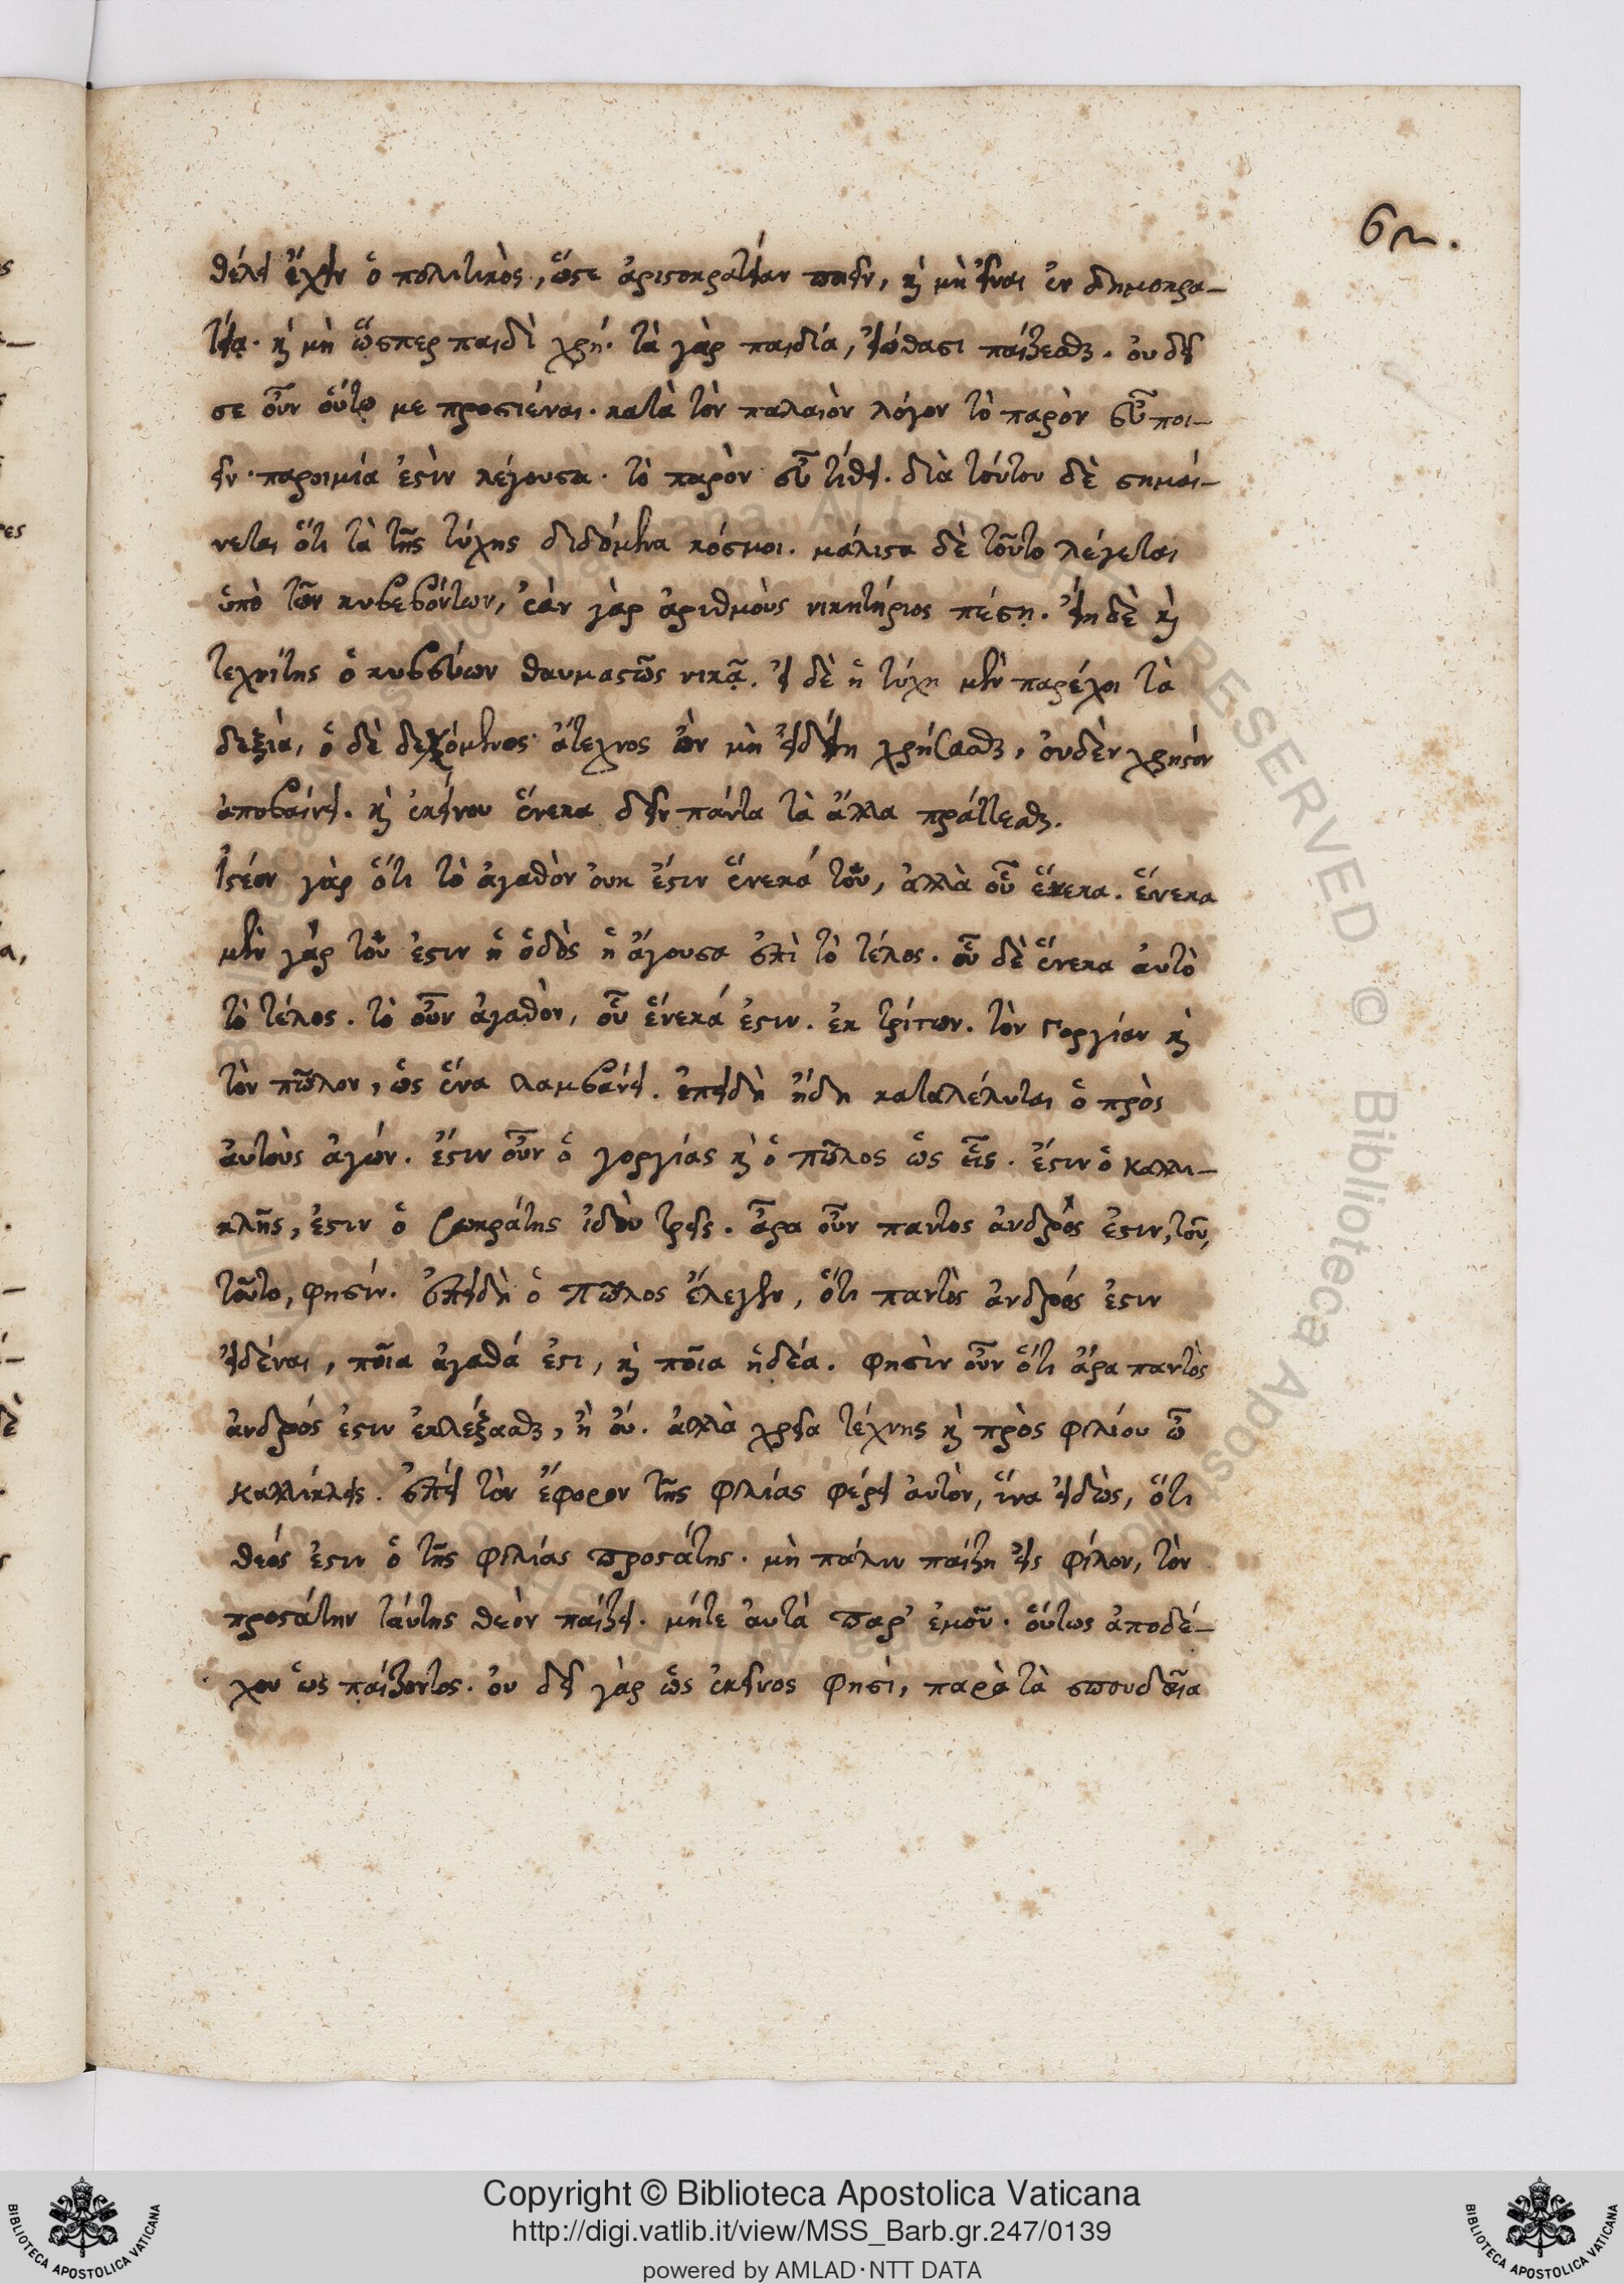 6ⲛ.
θέλει ἔχειν ὁ πολιτικὸς, ὥστε ἀριστοκρατείαν ποιεῖν, καὶ μὴ εἶναι ἐν δημοκρα-
τείᾳ. καὶ μὴ ὥσπερ παιδὶ χρή. τὰ γὰρ παιδία, εἰώθασι παίζεσθαι. οὐ δεῖ
σε οὖν οὕτω με προσιέναι. κατὰ τὸν παλαιὸν λόγον τὸ παρὸν εὖ ποι-
εῖν. παροιμία ἐστὶν λέγουσα. τὸ παρὸν εὖ τίθει. διὰ τούτου δὲ σημαί-
νεται ὅτι τὰ τῆς τύχης διδόμενα κόσμοι. μάλιστα δὲ τοῦτο λέγεται
ὑπὸ τῶν κυβευόντων, ἐὰν γὰρ ἀριθμοὺς νικητήριος πέσῃ. εἴη δὲ καὶ
τεχνίτης ὁ κυβεύων θαυμαστῶς νικᾷ. εἰ δὲ ἡ τύχη μὲν παρέχοι τὰ
δεξιὰ, ὁ δὲ δεχόμενος ἄτεχνος ὢν μὴ εἰδείη χρήσασθαι, οὐδὲν χρηστὸν
ἀποβαίνει. καὶ ἐκείνου ἕνεκα δεῖν πάντα τὰ ἄλλα πράττεσθαι.
Ἰστέον γὰρ ὅτι τὸ ἀγαθὸν οὐκ ἔστιν ἕνεκά του, ἀλλὰ οὗ ἕνεκα. ἕνεκα
μὲν γάρ του ἐστιν ἡ ὁδὸς ἡ ἄγουσα ἐπὶ τὸ τέλος. οὗ δὲ ἕνεκα αὐτὸ
τὸ τέλος. τὸ οὖν ἀγαθὸν, οὗ ἕνεκά ἐστιν. ἐκ τρίτων. τὸν Γοργίαν καὶ
τὸν πῶλον, ὡς ἕνα λαμβάνει. ἐπειδὴ ἤδη καταλέλυται ὁ πρὸς
αὐτοὺς ἀγών. ἔστιν οὖν ὁ γοργίας καὶ ὁ πῶλος ὡς εἷς. ἔστιν ὁ Καλλι-
κλῆς, ἐστιν ὁ Σωκράτης ἰδοὺ τρεῖς. ἆρα οὖν παντὸς ἀνδρός ἐστιν, τοῦ,
τοῦτο, φησίν. ἐπειδὴ ὁ πῶλος ἔλεγεν, ὅτι παντὸς ἀνδρός ἐστιν
εἰδέναι, ποῖα ἀγαθά ἐστι, καὶ ποῖα ἡδέα. φησὶν οὖν ὅτι ἄρα παντὸς
ἀνδρός ἐστιν ἐκλέξασθαι, ἢ οὔ. ἀλλὰ χρεία τέχνης καὶ πρὸς φιλίου ὦ
Καλλίκλεις. ἐπεὶ τὸν ἔφορον τῆς φιλίας φέρει αὐτὸν, ἵνα εἰδὼς, ὅτι
θεός ἐστιν ὁ τῆς φιλίας προστάτης. μὴ πάλιν παίζη εἰς φίλον, τὸν
προστάτην ταύτης θεὸν παίζει. μήτε αὐτὰ παρ' ἐμοῦ. οὕτως ἀποδέ-
χου ὡς παίζοντος. οὐ δεῖ γὰρ ὡς ἐκεῖνος φησὶ, παρὰ τὰ σπουδαῖα
Copyright © Biblioteca Apostolica Vaticana
http://digi.vatlib.it/view/MSS_Barb.gr.247/0139
powered by AMLAD·NTT DATA